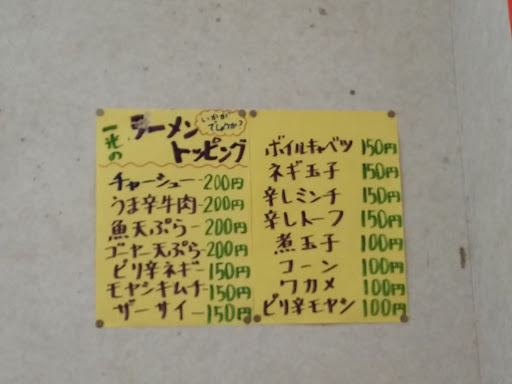 一光の
ラーメン
トッピング
いかが
でしょうか?
チャーシュー-200円
うま辛牛肉-200円
魚天ぷら-200円
ゴーヤー天ぷら-200円
ピリ辛ネギ-150円
モヤシキムチ-150円
ザーサイ-150円
ボイルキャベツ 150円
ネギ玉子 150円
辛しミンチ 150円
辛しトーフ 150円
煮玉子 100円
コーン 100円
ワカメ 100円
ピリ辛モヤシ 100円